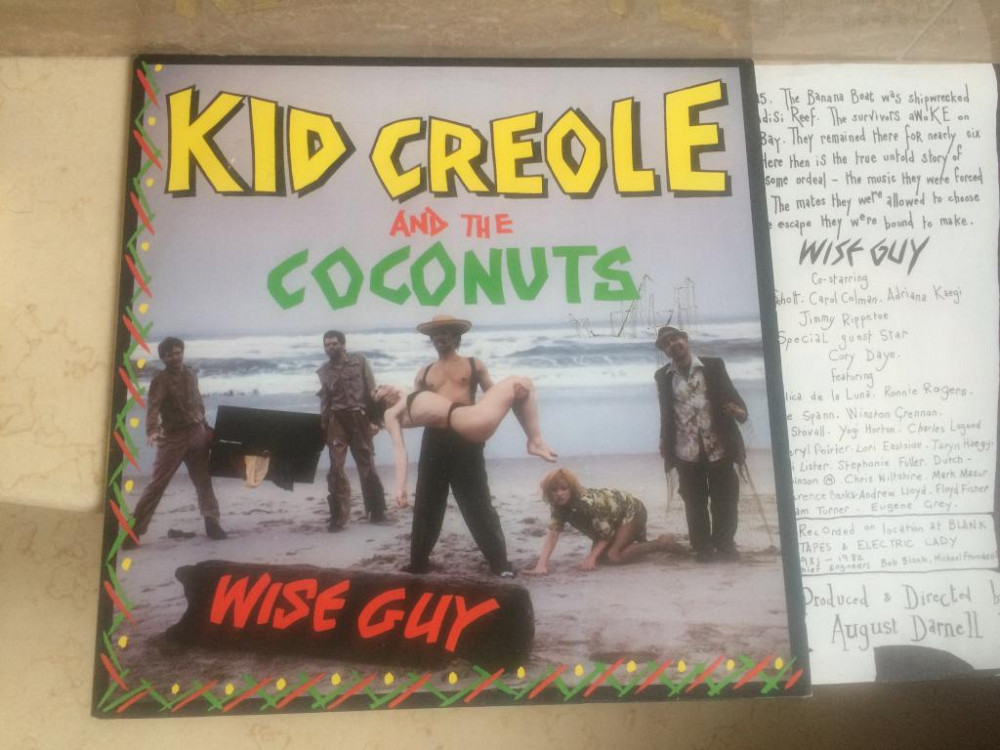 KID CREOLE
AND THE
COCONUTS
WISE GUY
The Banana Boat was shipwrecked
Reef. The survivors awoKE on
Bay. They remained there for nearly six
Here then is the true untold story of
some ordeal - the music they were forced
The mates they were allowed to choose
escape they were bound to make.
WISE GUY
Co-starring
Carol Colman. Adriana Kaegi
Jimmy Rippetoe
Special guest Star
Cory Daye.
featuring
de la Luna. Ronnie Rogers.
Spann. Winston Grennan.
Stovall. Yogi Horton. Charles Lagond
Poirier. Lori Eastside. Taryn Haegy.
Lister. Stephanie Fuller. Dutch -
Chris Wiltshire. Mark Mazur
Banks. Andrew Lloyd. Floyd Fisher
Turner - Eugene Grey.
Recorded on location at BLANK
TAPES & ELECTRIC LADY
1982
Engineers Bob Blank, Michael
Produced & Directed
August Darnell